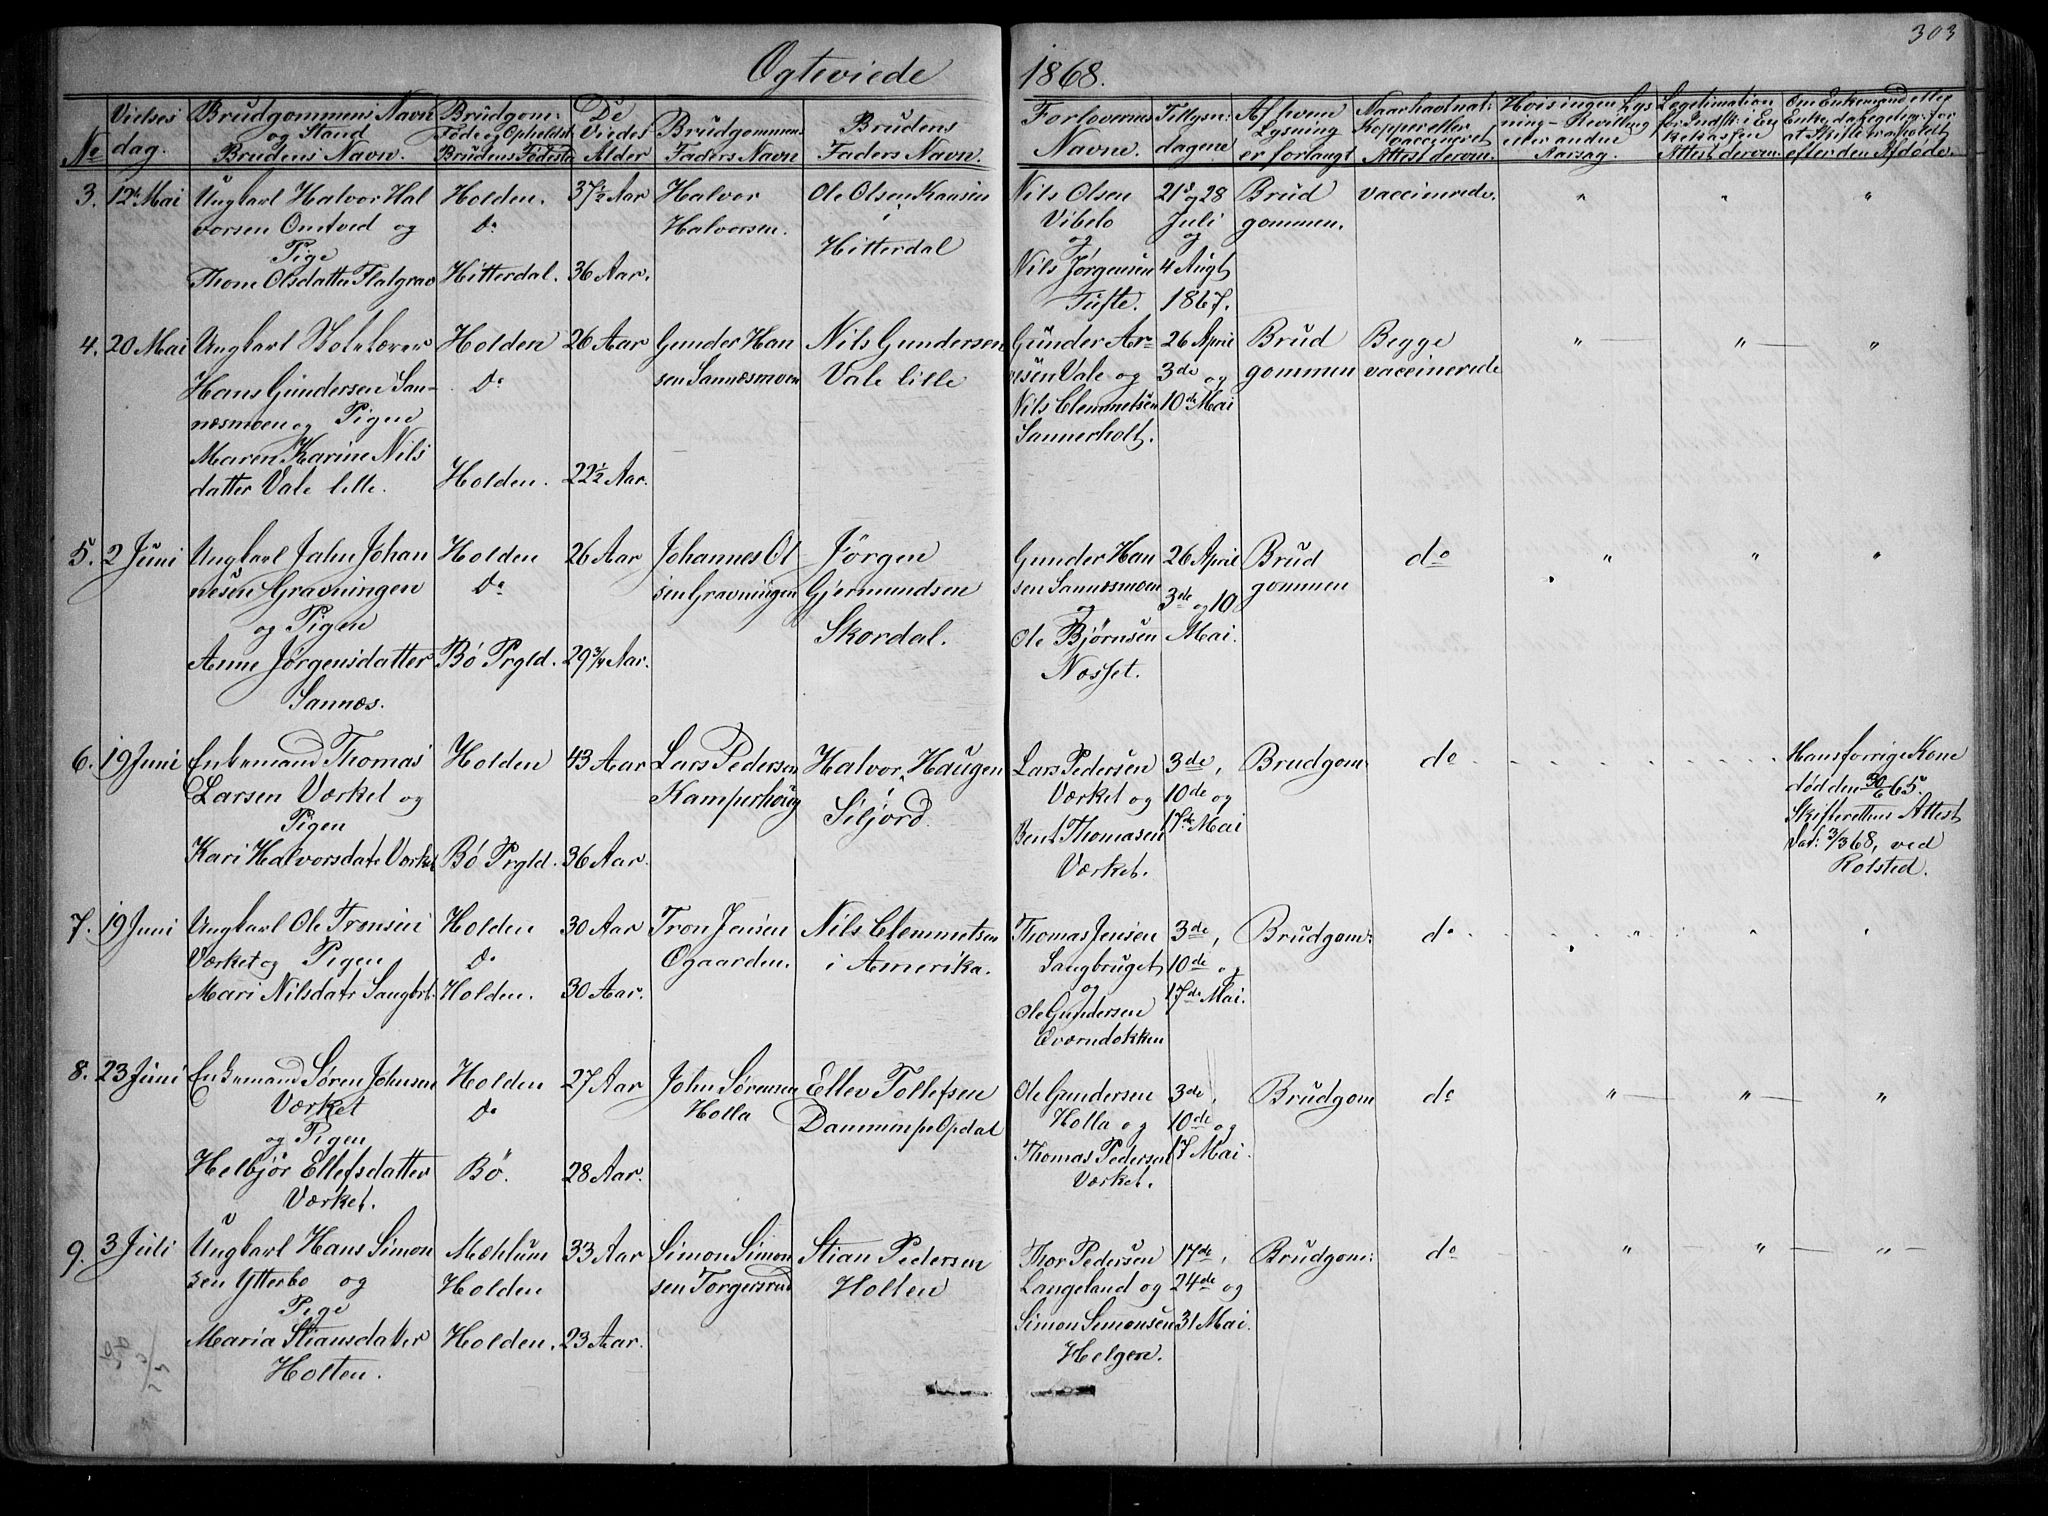 303
Ogteviede 1868.
No
Vielses dag.
Brudgommens Navn og Stand Brudens Navn.
Brudgom: Føde og Opholdst Brudens Fødestd
De Viedes Alder
Brudgommens Faders Navn
Brudens Faders Navn.
Forlovernes Navne.
Tillysn: dagene
Af hvem Lysning er forlangt
Naar havt nat: Kopper eller vaccineret Attest derom.
Hvis ingen Lysning - Bevilling eller anden Aarsag.
Legitimation for Indsk: i Enkekassen Attest derom
Om Enkemand eller Enke, da Legdm: for at Skifte er afholdt efter den Afdøde.
3. 12te Mai Ungkarl Halvor Hal Holden. 37½ Aar Halvor Ole Olsen Kaasin Nils Olsen 21s og 28 Brud vaccinerede. " " "
vorsen Omtved og do Halvorsen. i Vibeto Juli gommen.
Pige Hitterdal og og
Thone Olsdatter Flatgrav Hitterdal. 36 Aar. Nils Jørgensen 4 Augt
Tufte. 1867.
4. 20 Mai Ungkarl Skolelærer Holden 26 Aar Gunder Han Nils Gundersen Gunder Ar 26 April Brud Begge " " "
Hans Gundersen San do sen Sannæsmoen Vale lille Vale og 3de og gommen vaccinerede
næsmoen og Pigen Nils Clemmetsen 10de Mai
Maren Karine Nils Sannerholt.
datter Vale lille. Holden. 22½ Aar.
5. 2 Juni Ungkarl Jahn Johan Holden 26 Aar Johannes Ol Jørgen Gunder Han 26 April Brud do " " "
nesen Gravningen do sen Gravningen Gjermundsen sen Sannæsmoen 3de og 10 gommen
og Pigen Skordal. og Mai.
Anne Jørgensdatter Bö Prgld. 29¾ Aar. Ole Bjørnsen
Sannæs. Næsset.
6. 19 Juni Enkemand Thomas Holden 43 Aar Lars Pedersen Halvor Haugen Lars Pedersen 3de, Brudgom do Hans forrige Kone
Larsen Værket og Kamperhoug i Værket og 10de og død den 30/6 65.
Pigen Siljord. Bent Thomasen 17de Mai Skifterettens Attest
Kari Halvorsdatr Værket Bö Prgld. 36 Aar. Værket. Dat: 3/3 68, ved
Rolsted.
7. 19 Juni Ungkarl Ole Tronsen Holden 30 Aar Tron Jensen Nils Clemmetsen Thomas Jensen 3de, Brudgom: do " " "
Værket og Pigen do Ogaarden. i Amerika. Saugbruget 10de og
Mari Nilsdatr Saugbr: Holden. 30 Aar. og 17de Mai.
Ole Gundersen
Qværndokken
8. 23 Juni Enkemand Søren Johnsen Holden 27 Aar John Sørensen Ellev Tollefsen Ole Gundersen 3de, Brudgom do " " "
Værket do Holla Opdal Holla og 10de og
og Pigen Thomas Pedersen 17 Mai.
Helbjör Ellefsdatter Bö. 28 Aar. Værket.
Værket.
9. 3 Juli Ungkarl Hans Simon Mæhlum 33 Aar Simon Simon Stian Pedersen Thor Pedersen 17de, Brudgom: do " " "
sen Ytterbo og Holden sen Torgersrud Holten Langeland og 24de og
Pige Simon Simonsen 31 Mai.
Maria Stiansdatter Holden. 23 Aar. Helgen.
Holten.